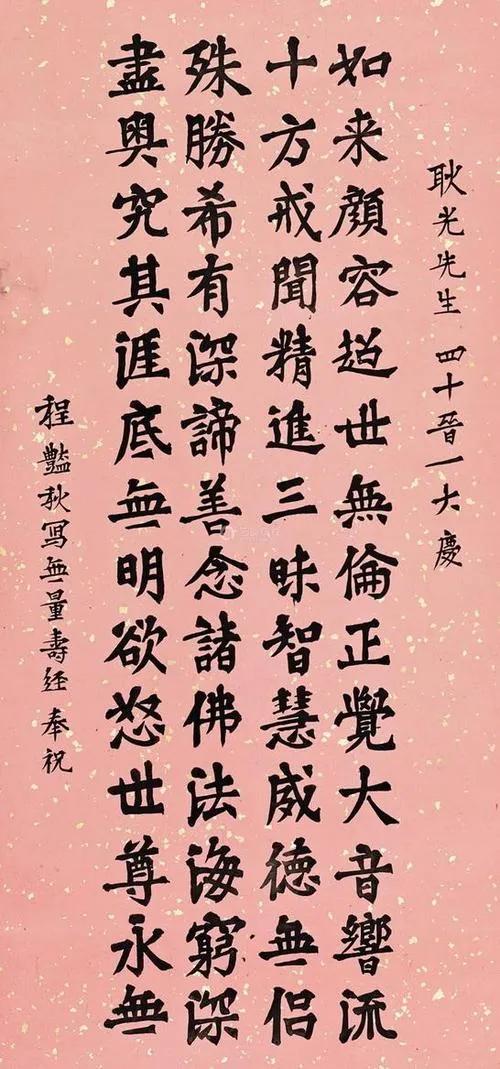 耿光先生 四十晉一大慶
如来顏容超世無倫正覺大音響流
十方戒聞精進三昧智慧威德無侣
殊勝希有深諦善念諸佛法海窮深
盡奥究其涯底無明欲怒世尊永無
程豔秋寫無量壽经奉祝